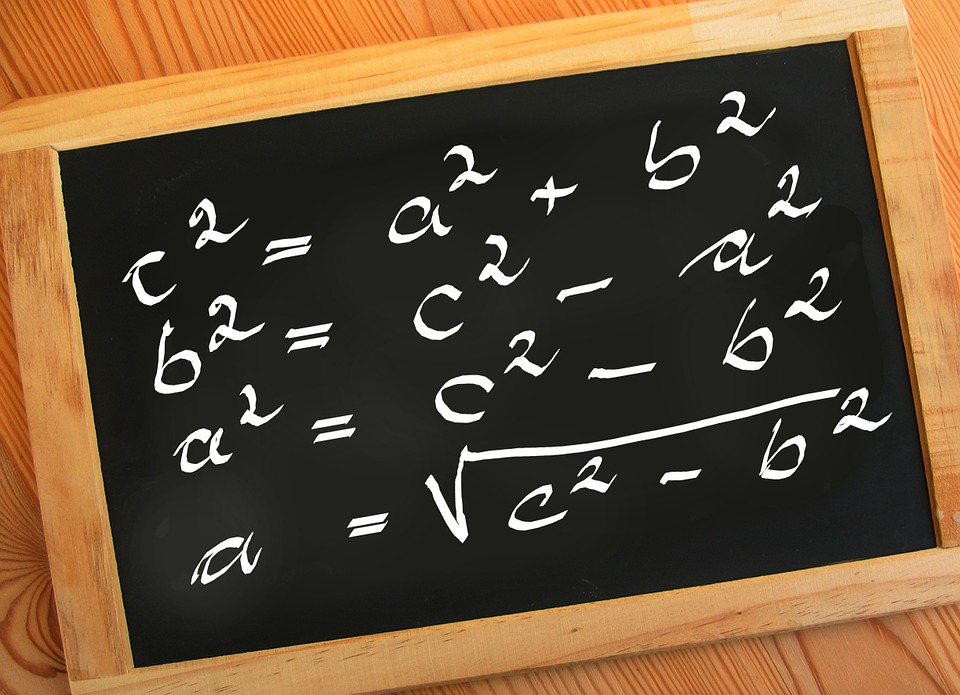 c² = a² + b²
b² = c² − a²
a² = c² − b²
a = √(c² − b²)